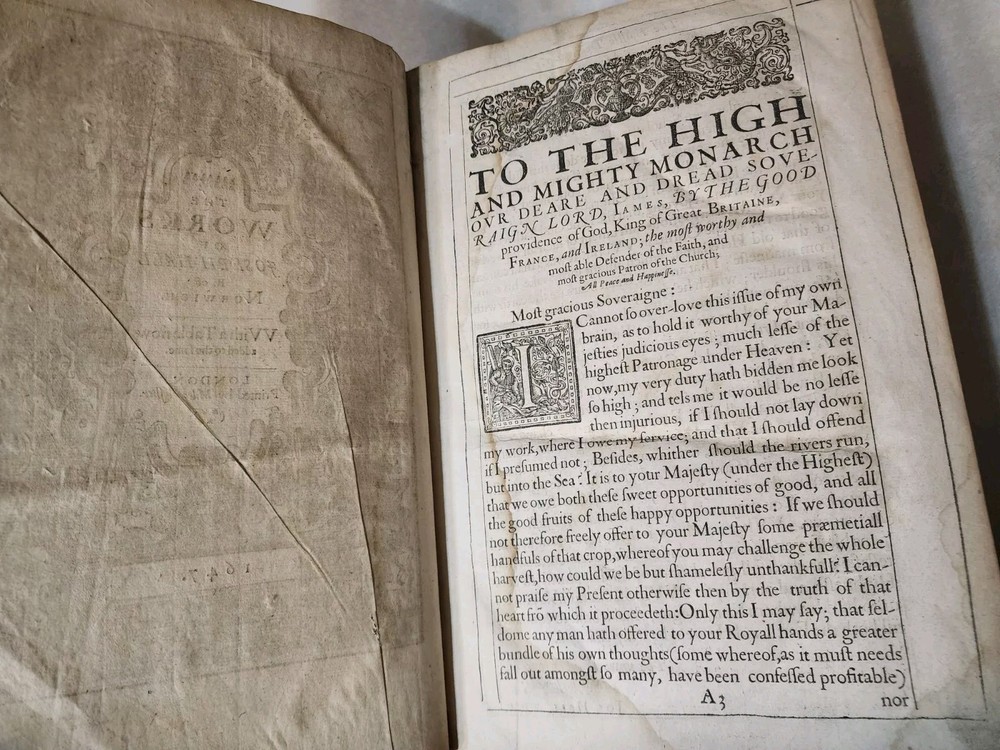 THE
WORKS
LONDON
1647
TO THE HIGH
AND MIGHTY MONARCH
OVR DEARE AND DREAD SOVE-
RAIGN LORD, IAMES, BY THE GOOD
providence of God, King of Great BRITAINE,
FRANCE, and IRELAND; the moſt worthy and
moſt able Defender of the Faith, and
moſt gracious Patron of the Church;
All Peace and Happineſſe.
Moſt gracious Soveraigne :
I Cannot ſo over-love this iſſue of my own
brain, as to hold it worthy of your Ma-
jeſties judicious eyes ; much leſſe of the
higheſt Patronage under Heaven : Yet
now, my very duty hath bidden me look
ſo high ; and tels me it would be no leſſe
then injurious, if I ſhould not lay down
my work, where I owe my ſervice; and that I ſhould offend
if I preſumed not ; Beſides, whither ſhould the rivers run,
but into the Sea? It is to your Majeſty (under the Higheſt)
that we owe both theſe ſweet opportunities of good, and all
the good fruits of theſe happy opportunities : If we ſhould
not therefore freely offer to your Majeſty ſome præmetiall
handfuls of that crop, whereof you may challenge the whole
harveſt, how could we be but ſhameleſly unthankfull? I can-
not praiſe my Preſent otherwiſe then by the truth of that
heart frō which it proceedeth: Only this I may ſay; that ſel-
dome any man hath offered to your Royall hands a greater
bundle of his own thoughts (ſome whereof, as it muſt needs
fall out amongſt ſo many, have been confeſſed profitable)
A3
nor